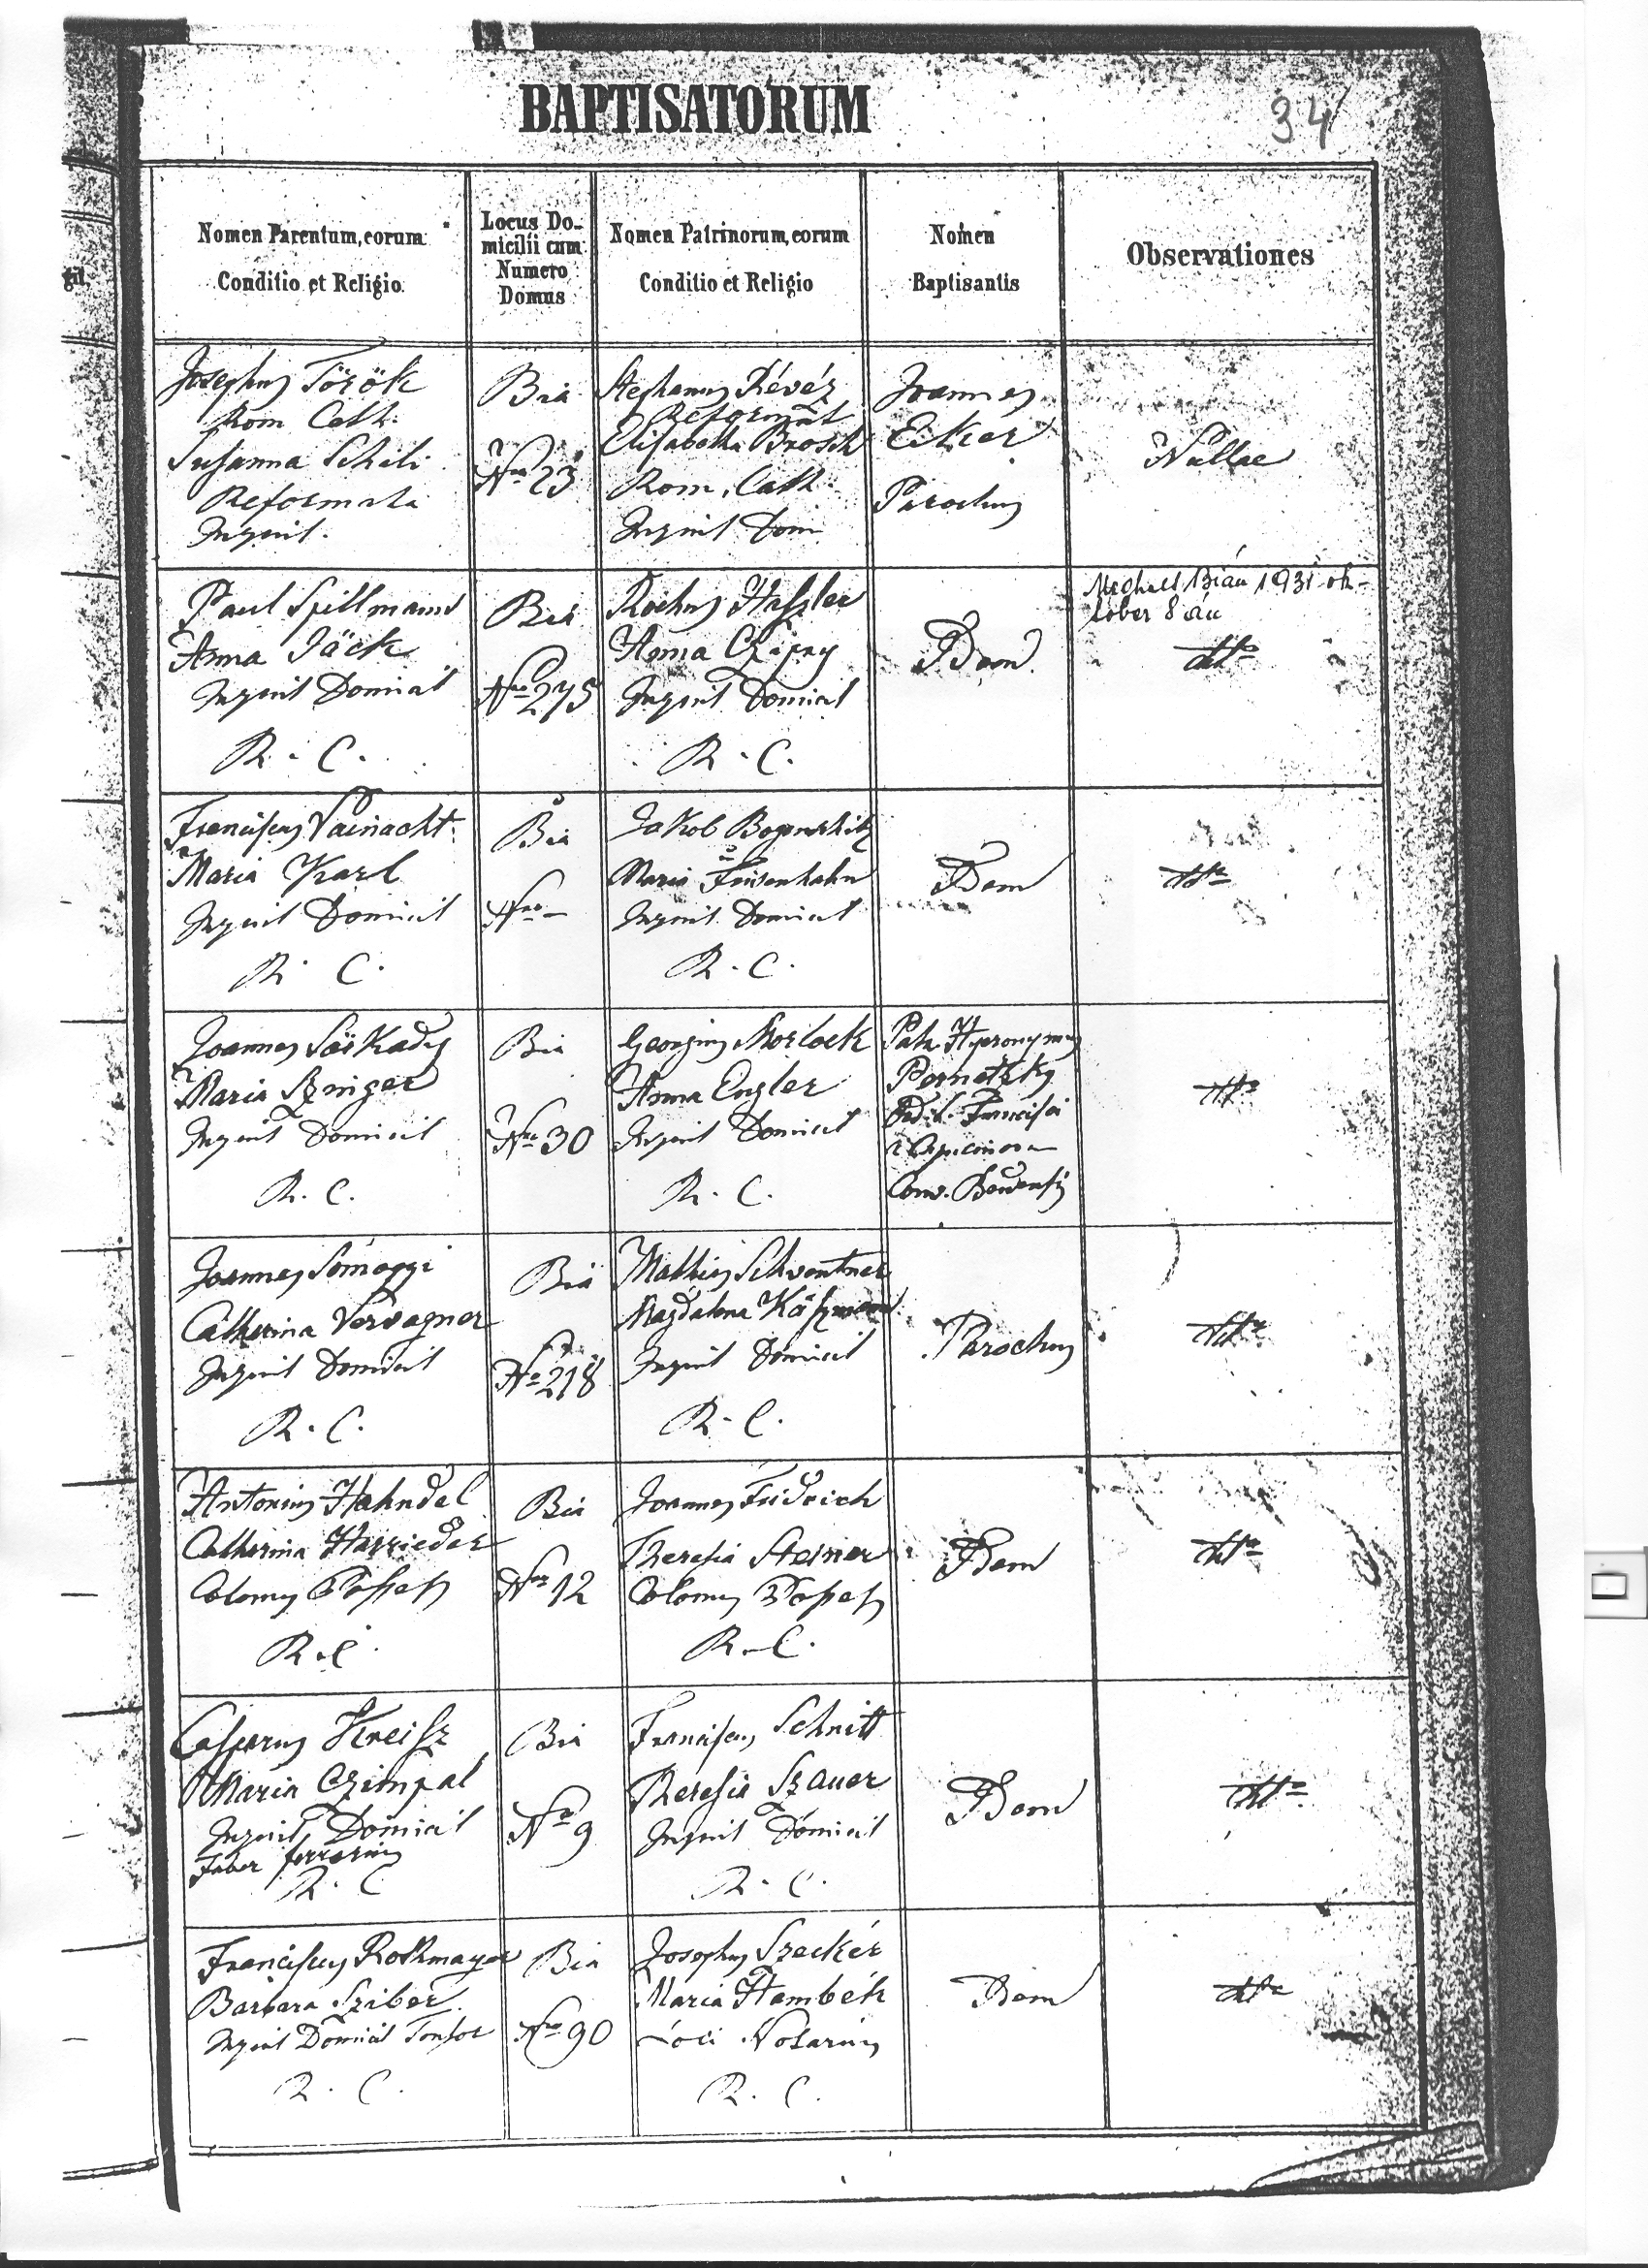 BAPTISATORUM
34
Nomen Parentum, eorum
Conditio et Religio
Locus Do-
micilii cum
Numero
Domus
Nomen Patrinorum, eorum
Conditio et Religio
Nomen
Baptisantis
Observationes
Josephus Török
Rom Cath.
Susanna Schili
Reformata
Inquil.
Bia
Nro 23
Stephanus Révész
Reformat
Elisabetha Brosch
Rom. Cath.
Inquil Dom
Joannes
Eiker
Parochus
Nullae
Paul Spillmann
Anna Jäck
Inquil Domicil
R. C.
Bia
Nro 275
Rochus Haszler
Anna Czápay
Inquil Domicil
R. C.
IDem
Meghalt Bián 1931 ok-
tober 8 án
dtto
Franciscus Vainacht
Maria Karl
Inquil Domicil
R. C.
Bia
Nro –
Jakob
Maria Feisenhahn
Inquil Domicil
R. C.
IDem
dtto
Joannes Sáskady
Maria Szinger
Inquil Domicil
R. C.
Bia
Nro 30
Georgius Morlock
Anna Engler
Inquil Domicil
R. C.
Pat. Hyeronymus
Pernetzky
Ord. S. Francisci
Conv. Budensis
dtto
Joannes Somogyi
Catherina Vervagner
Inquil Domicil
R. C.
Bia
Nro 218
Mathias Schventner
Magdalena Käszmann
Inquil Domicil
R. C.
Parochus
dtto
Antonius Hahndel
Catherina Harrieder
Colonus Possess
R. C.
Bia
Nro 12
Joannes Fridrich
Theresia Steiner
Colonus Possess
R. C.
IDem
dtto
Casparus Kreisz
Maria Czimpal
Inquil Domicil
Faber ferrarius
R. C.
Bia
Nro 9
Franciscus Schnitt
Theresia Szauer
Inquil Domicil
R. C.
IDem
dtto
Franciscus Rothmayer
Barbara Sziber
Inquil Domicil Tonsor
R. C.
Bia
Nro 90
Josephus Szeckér
Maria Hambék
Loci Notarius
R. C.
IDem
dtto